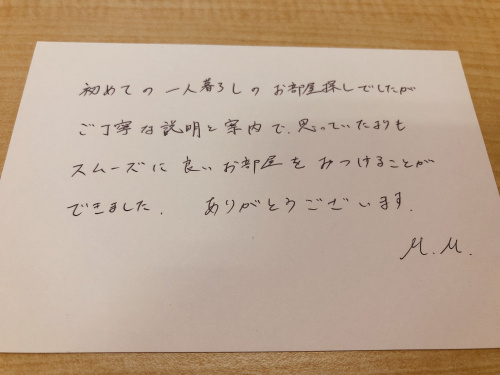 初めての一人暮らしのお部屋探しでしたが
ご丁寧な説明と案内で、思っていたよりも
スムーズに良いお部屋をみつけることが
できました。 ありがとうございます。
M.M.